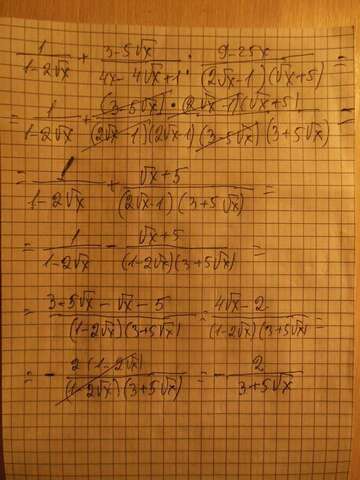 1/(1-2√x) + (3-5√x)/(4x-4√x+1) : (9-25x)/((2√x-1)(√x+5)) =
= 1/(1-2√x) + ((3-5√x)·(2√x-1)(√x+5))/((2√x-1)(2√x-1)(3-5√x)(3+5√x)) =
= 1/(1-2√x) + (√x+5)/((2√x-1)(3+5√x)) =
= 1/(1-2√x) - (√x+5)/((1-2√x)(3+5√x)) =
= (3+5√x-√x-5)/((1-2√x)(3+5√x)) = (4√x-2)/((1-2√x)(3+5√x)) =
= - (2(1-2√x))/((1-2√x)(3+5√x)) = - 2/(3+5√x)